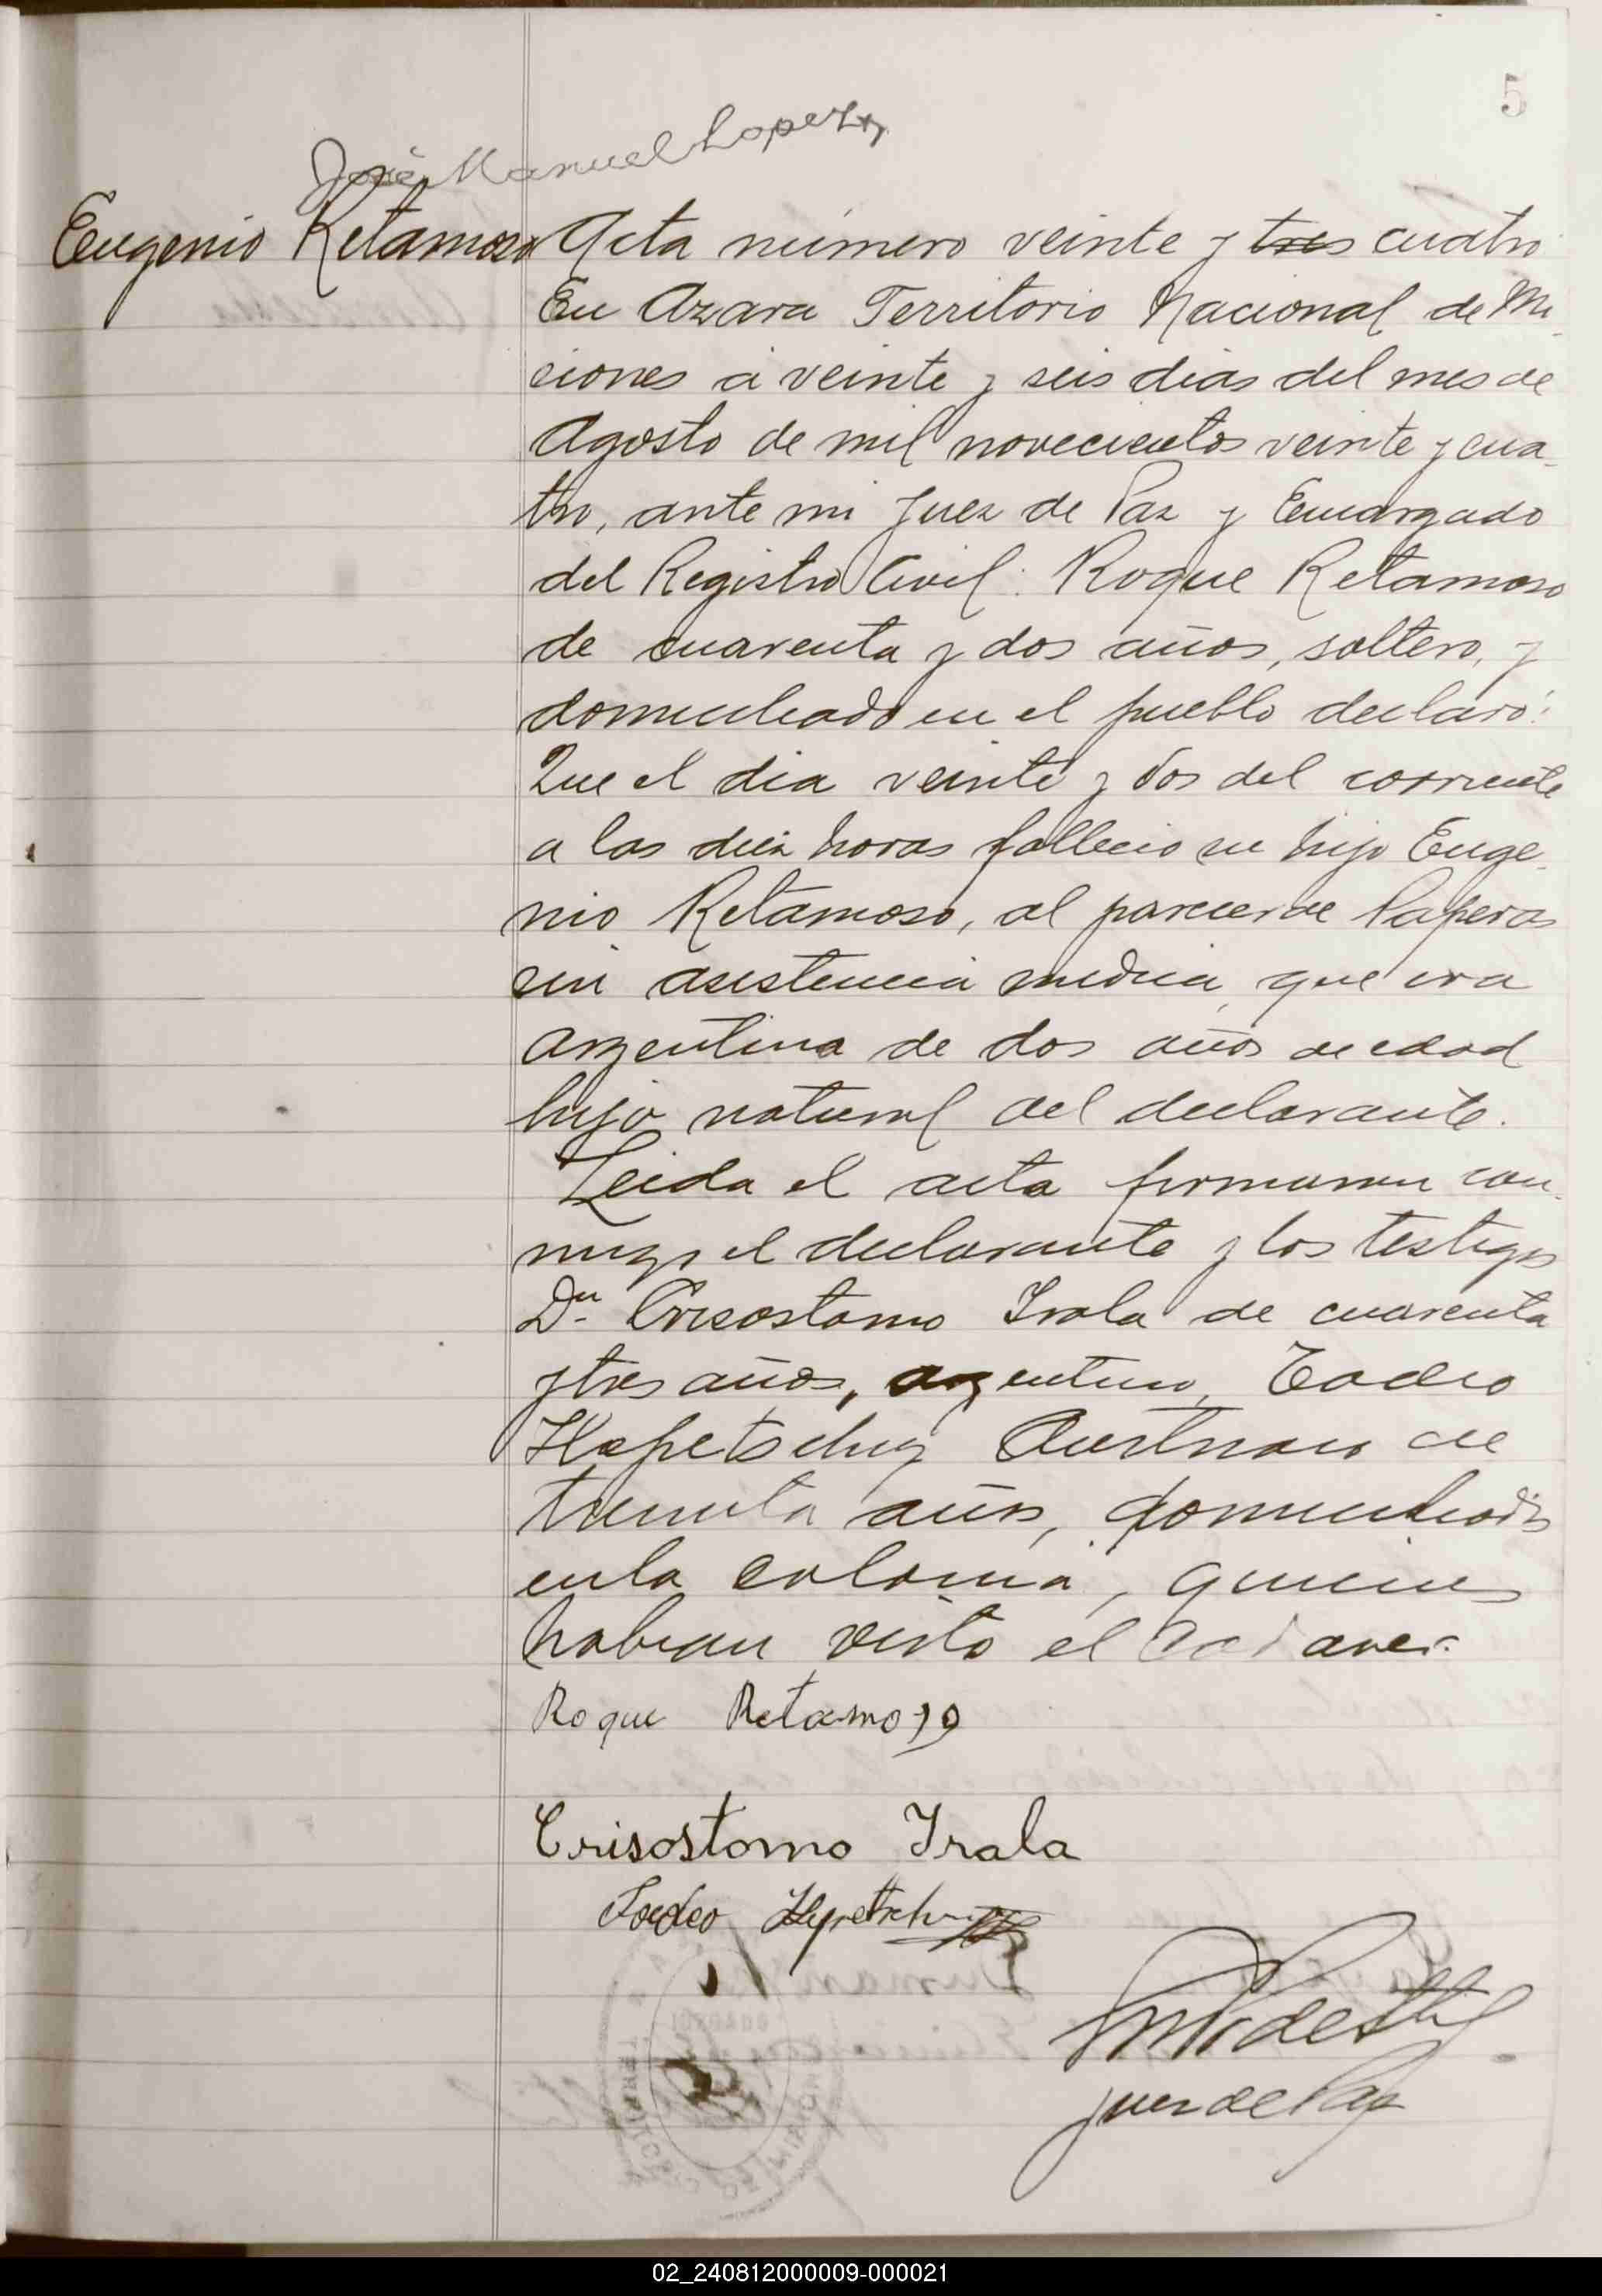 5
José Manuel Lopez
Eugenio Retamoso
Acta número veinte y tres cuatro
En Azara Territorio Nacional de Mi
ciones a veinte y seis dias del mes de
Agosto de mil novecientos veinte y cua-
tro, ante mi Juez de Paz y Encargado
del Registro Civil: Roque Retamoso
de cuarenta y dos años, soltero, y
domiciliado en el pueblo declaró:
Que el dia veinte y dos del corriente
a las diez horas fallecio su hijo Euge-
nio Retamoso, al parecer de Paperas
sin asistencia medica, que era
argentino de dos años de edad
hijo natural del declarante.
Leida el acta firmaron con-
migo el declarante y los testigos
Dn. Crisostomo Irala de cuarenta
y tres años, argentino, Tadeo
Austriaco de
treinta años, domiciliados
en la colonia, quienes
habian visto el cadaver.
Roque Retamoso
Crisostomo Irala
Tadeo
Juez de Paz
02_240812000009-000021